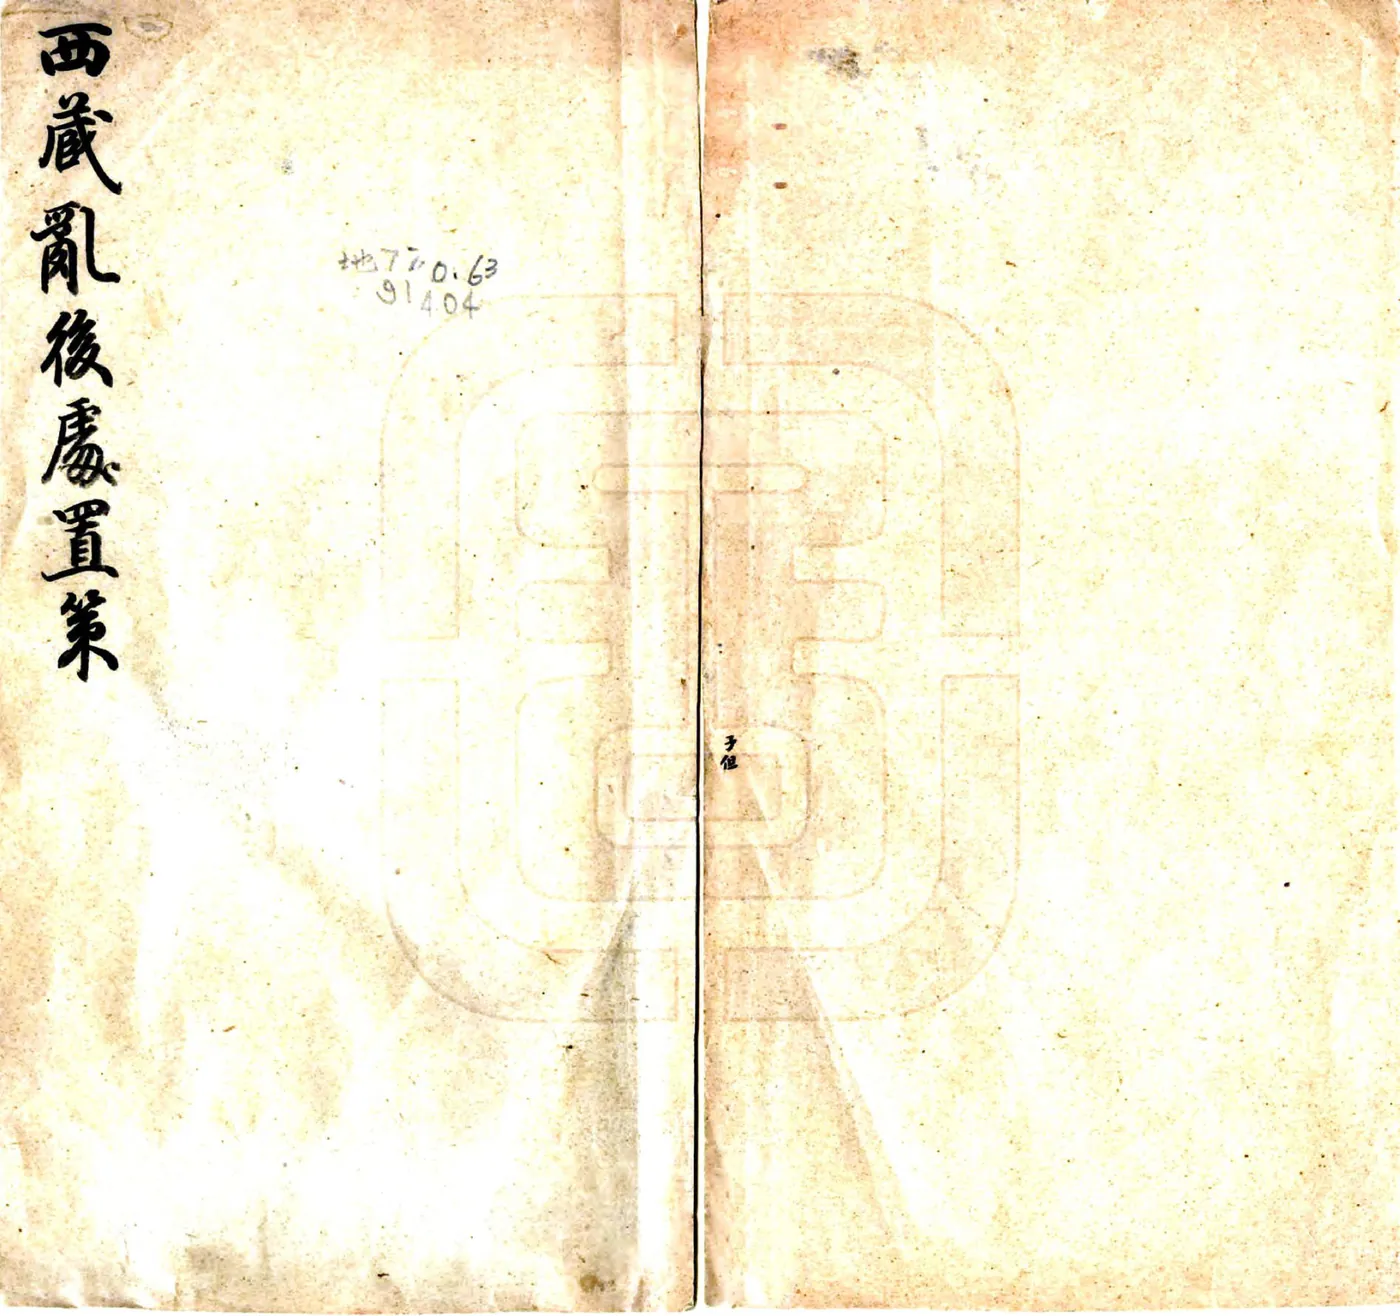 西藏亂後處置策
地7 0.63
91404
予但